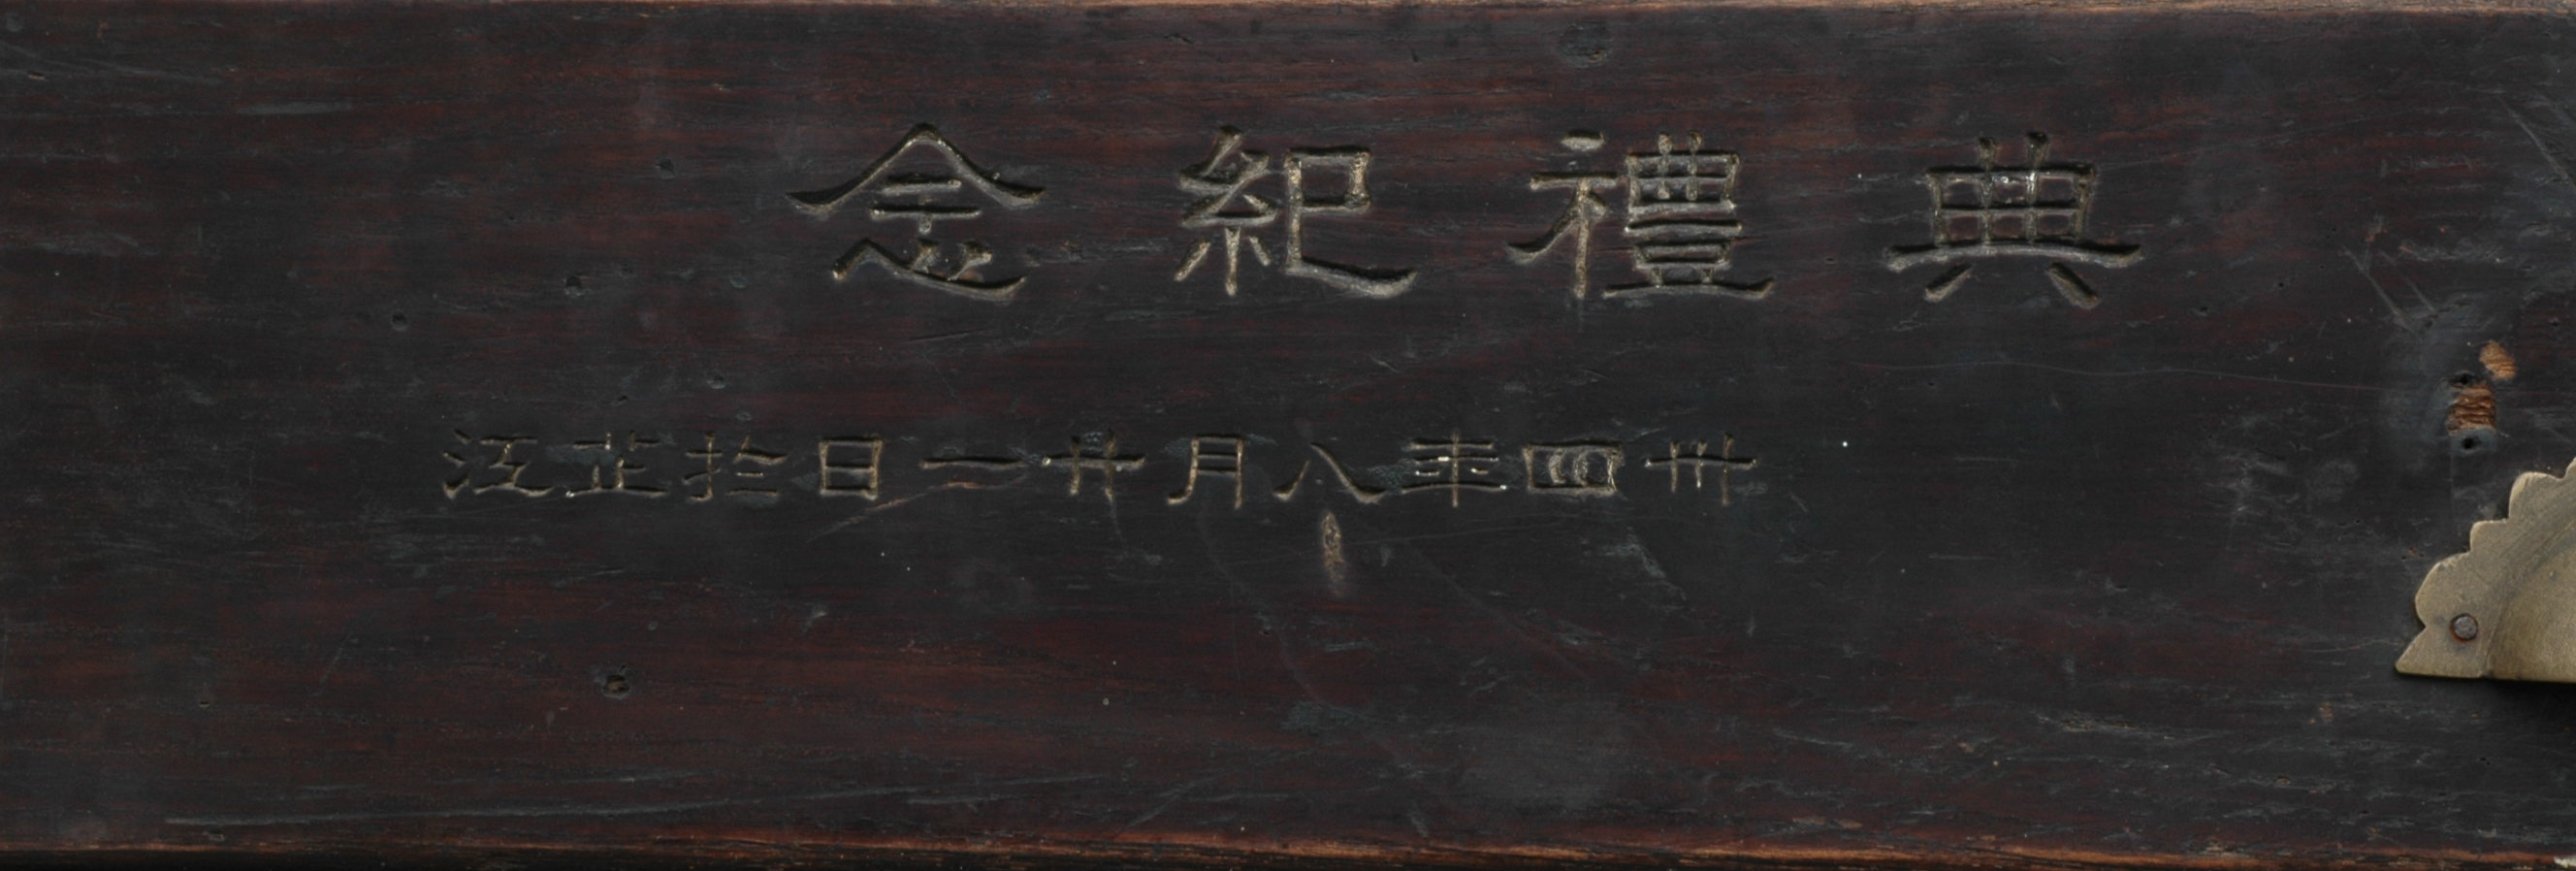 典禮紀念
卅四年八月廿一日扵芷江